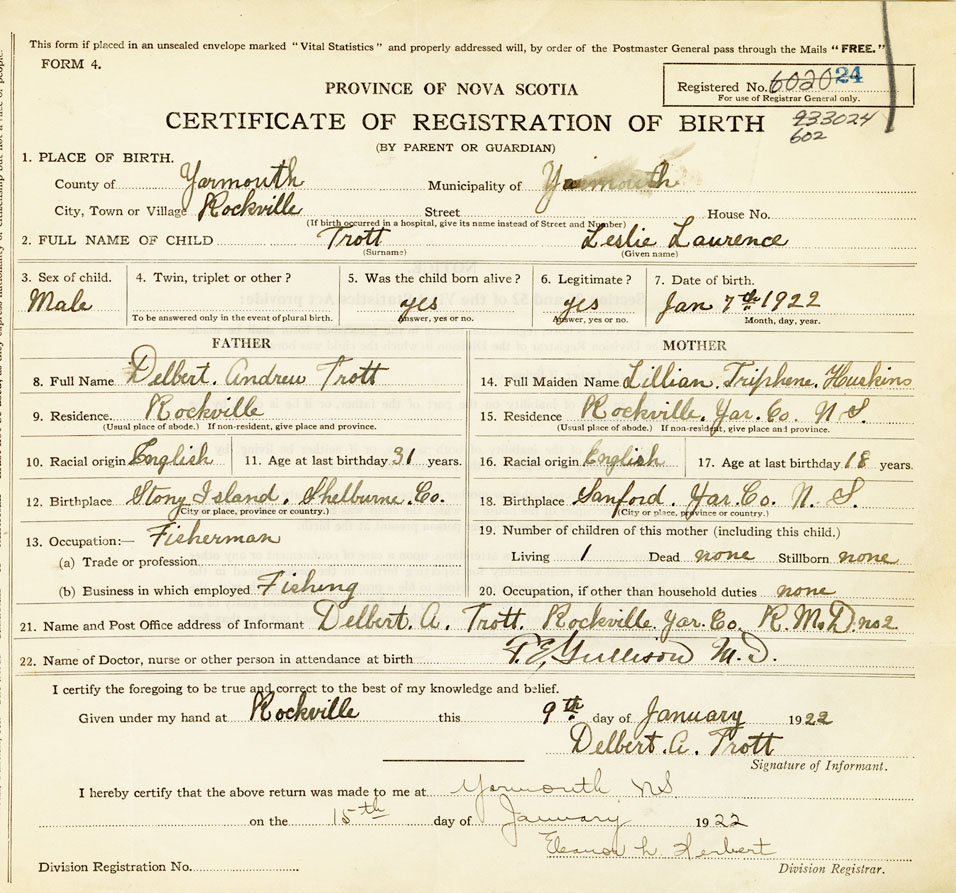 This form if placed in an unsealed envelope marked "Vital Statistics" and properly addressed will, by order of the Postmaster General pass through the Mails "FREE."
FORM 4.
Registered No. 6020 24
For use of Registrar General only.
PROVINCE OF NOVA SCOTIA
CERTIFICATE OF REGISTRATION OF BIRTH
933024
602
(BY PARENT OR GUARDIAN)
1. PLACE OF BIRTH.
County of Yarmouth Municipality of Yarmouth
City, Town or Village Rockville Street House No.
(If birth occurred in a hospital, give its name instead of Street and Number)
2. FULL NAME OF CHILD Trott Leslie Laurence
(Surname) (Given name)
3. Sex of child. 4. Twin, triplet or other? 5. Was the child born alive? 6. Legitimate? 7. Date of birth.
Male yes yes Jan 7th 1922
To be answered only in the event of plural birth. Answer, yes or no. Answer, yes or no. Month, day, year.
FATHER MOTHER
8. Full Name Delbert. Andrew Trott 14. Full Maiden Name Lillian. Triphene. Huskins
9. Residence. Rockville 15. Residence Rockville. Yar. Co. N S.
(Usual place of abode.) If non-resident, give place and province. (Usual place of abode.) If non-resident, give place and province.
10. Racial origin English 11. Age at last birthday 31 years. 16. Racial origin English 17. Age at last birthday 18 years.
12. Birthplace Stony Island. Shelburne. Co. 18. Birthplace Sanford. Yar. Co. N. S.
(City or place, province or country.) (City or place, province or country.)
13. Occupation:— Fisherman 19. Number of children of this mother (including this child.)
(a) Trade or profession Living 1 Dead none Stillborn none
(b) Business in which employed Fishing 20. Occupation, if other than household duties none
21. Name and Post Office address of Informant Delbert. A. Trott. Rockville. Yar. Co. R. M. D. no 2
22. Name of Doctor, nurse or other person in attendance at birth Gullison M. D.
I certify the foregoing to be true and correct to the best of my knowledge and belief.
Given under my hand at Rockville this 9th day of January 1922
Delbert. A. Trott
Signature of Informant.
I hereby certify that the above return was made to me at Yarmouth NS
on the 15th day of January 1922
Eleanor L Herbert
Division Registration No. Division Registrar.